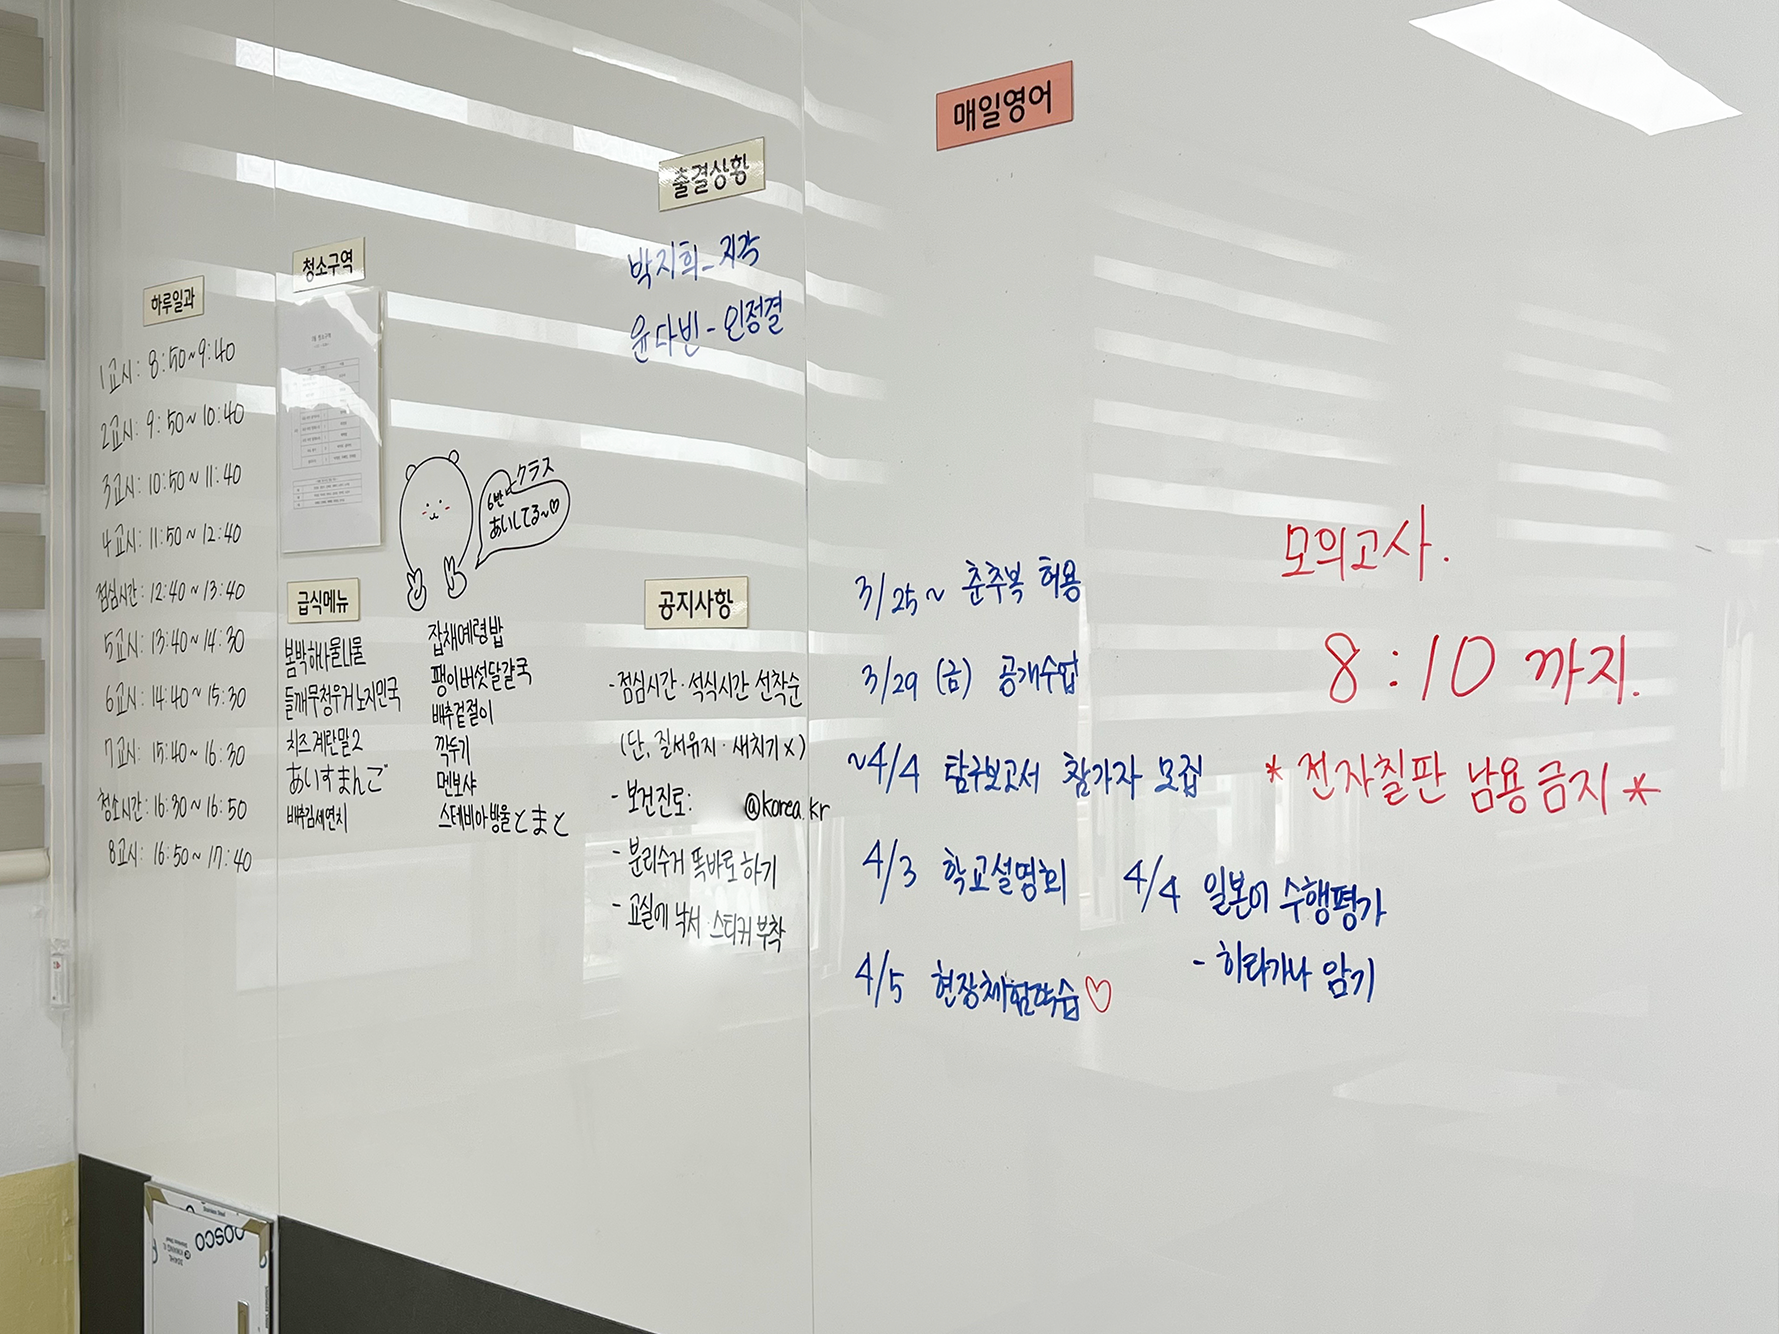 매일영어
출결상황
박지희_지각
윤다빈-인정결
청소구역
하루일과
1교시: 8:50~9:40
2교시: 9:50~10:40
3교시: 10:50~11:40
4교시: 11:50~12:40
점심시간: 12:40~13:40
5교시: 13:40~14:30
6교시: 14:40~15:30
7교시: 15:40~16:30
청소시간: 16:30~16:50
8교시: 16:50~17:40
クラス
6반
あいしてる~♡
급식메뉴
들깨무청우거
치즈계란말2
あいすまんご
잡채예령밥
팽이버섯달걀국
배추겉절이
깍두기
멘보샤
스테비아방울とまと
공지사항
-점심시간·석식시간 선착순
(단, 질서유지·새치기 x)
- 보건진로: @korea.kr
- 분리수거 똑바로 하기
- 교실에 낙서·스티커 부착
3/25~ 춘추복 허용
3/29 (금) 공개수업
~4/4 탐구보고서 참가자 모집
4/3 학교설명회
4/5 현장체험학습♡
4/4 일본어 수행평가
- 히라가나 암기
모의고사.
8:10 까지.
* 전자칠판 남용금지 *